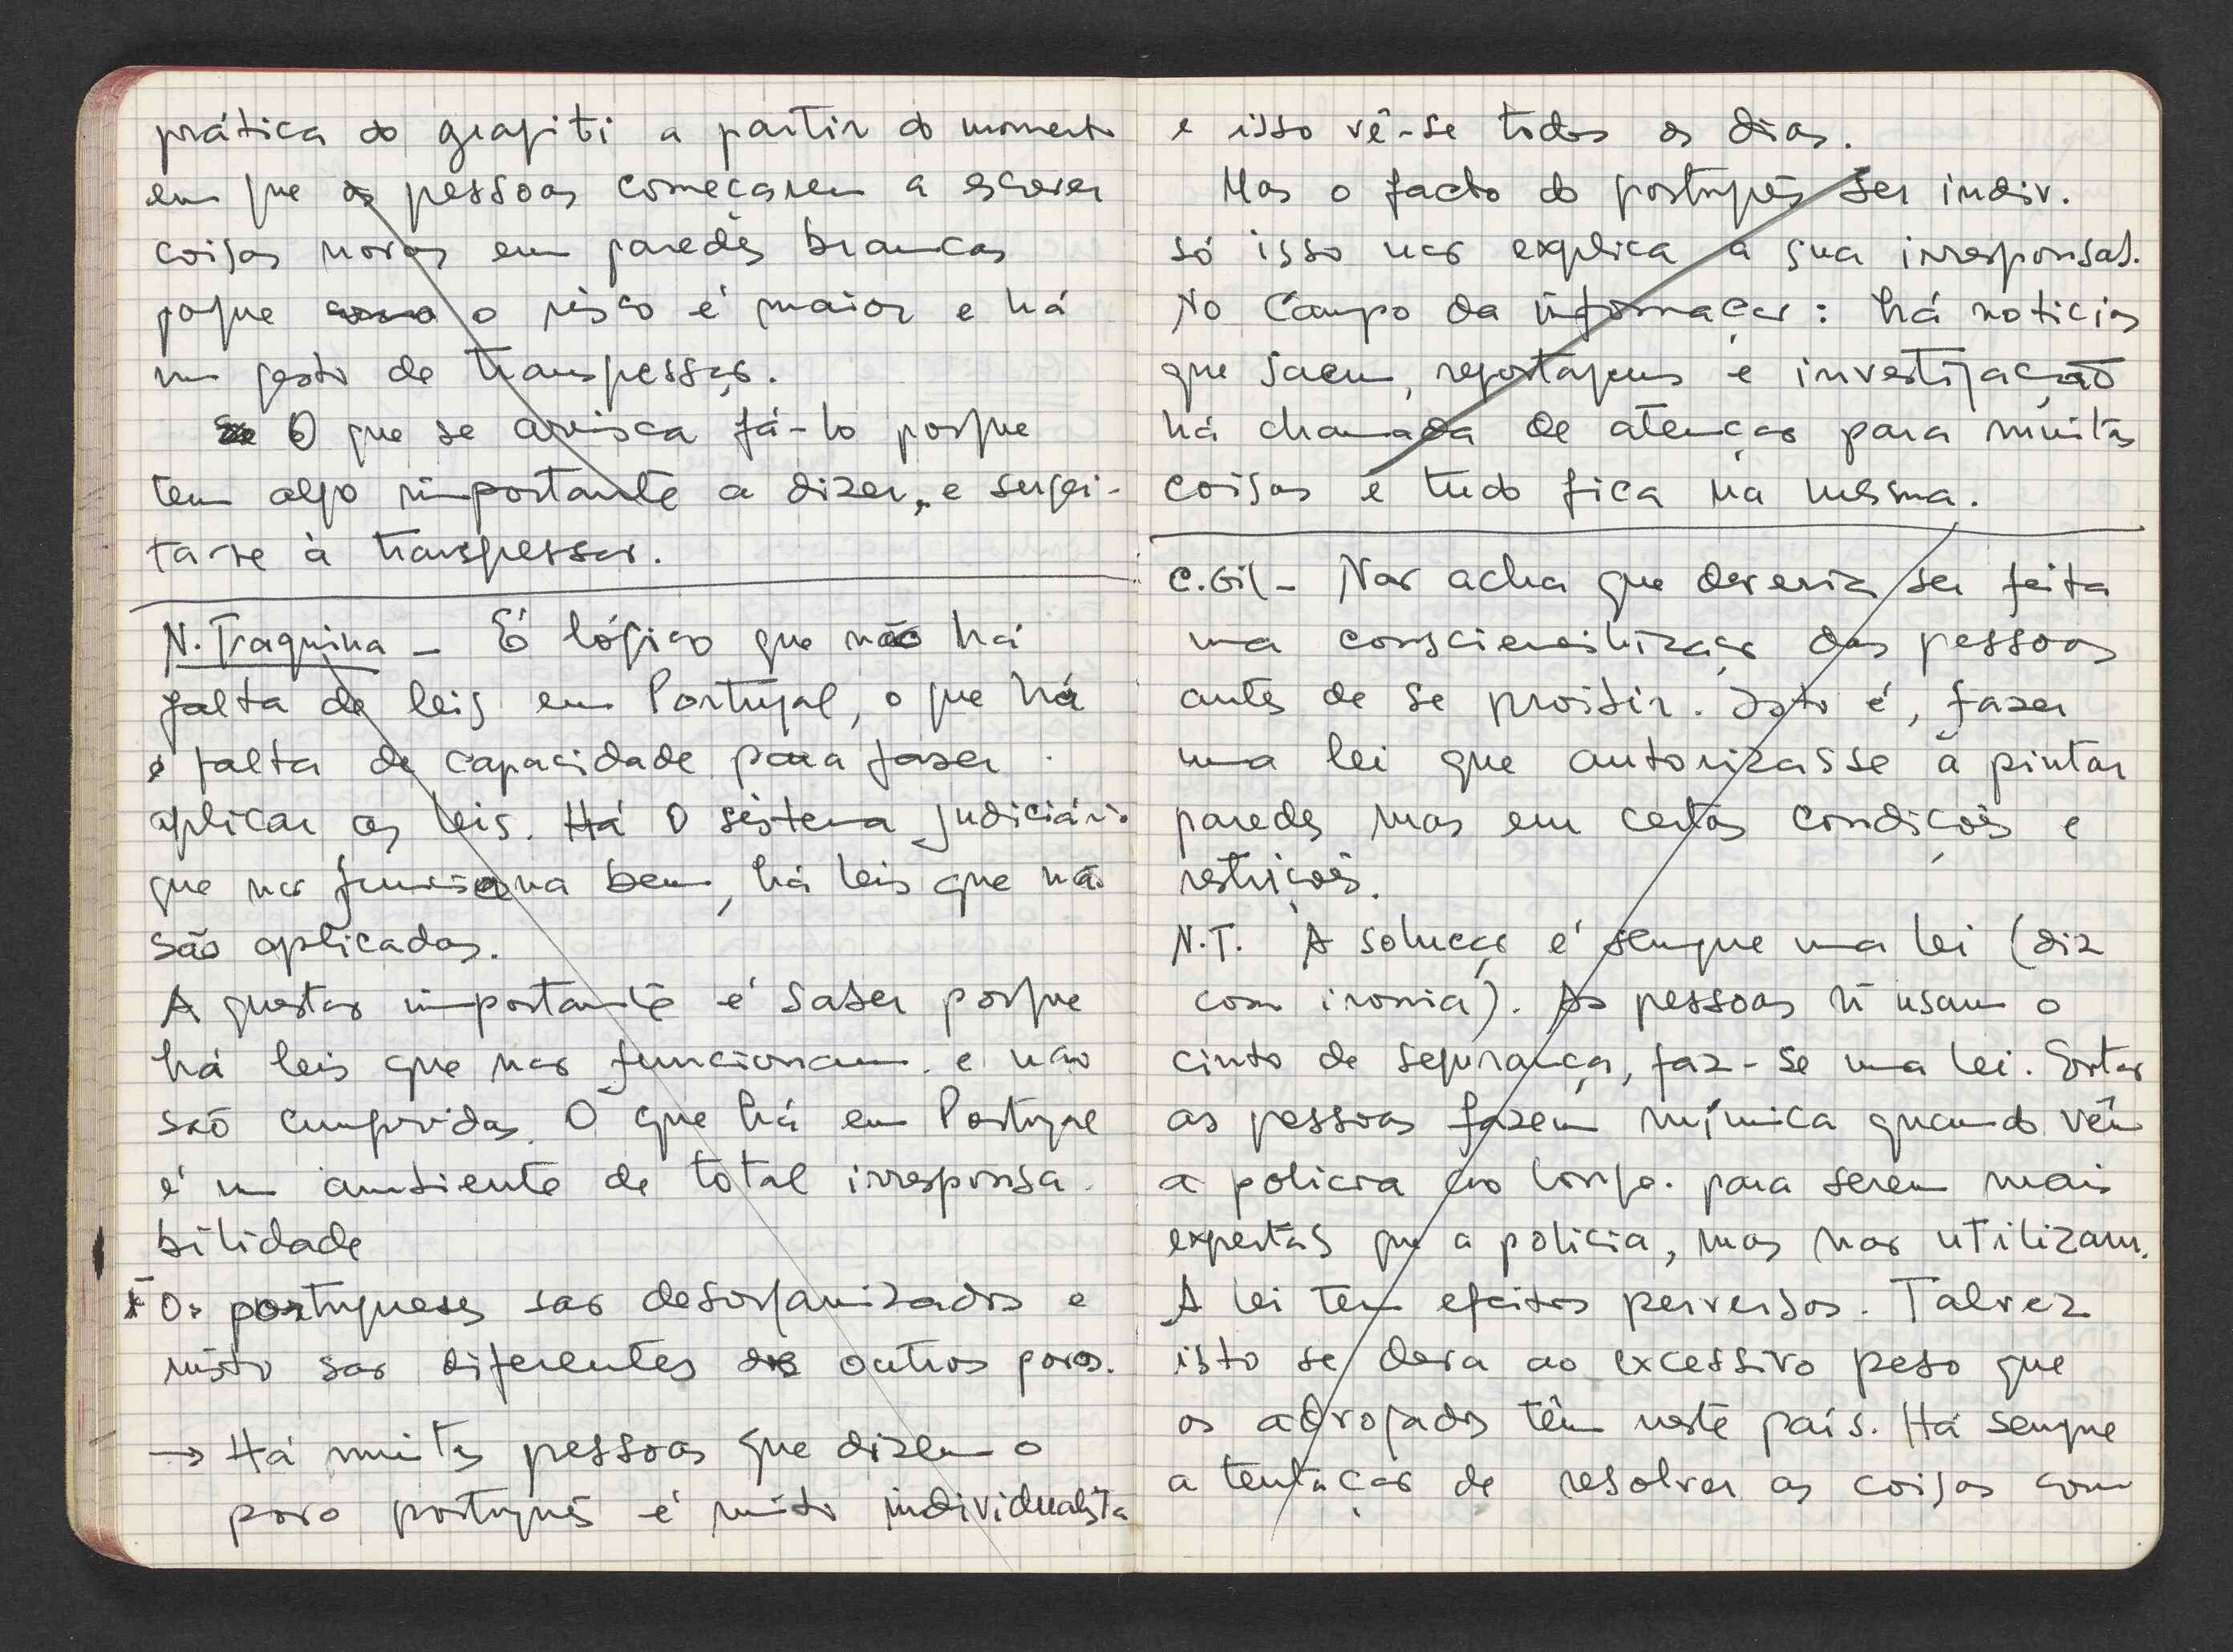 prática do grafiti a partir do momento
em que as pessoas começarem a escrever
coisas novas em paredes brancas
porque o risco é maior e há
um gesto de transgressão.
O que se arrisca fá-lo porque
tem algo importante a dizer, e sujei-
ta-se à transgressão.
N. Traquina - É lógico que não há
falta de leis em Portugal, o que há
é falta de capacidade para fazer
aplicar as leis. Há o sistema judiciário
que não funciona bem, há leis que não
são aplicadas.
A questão importante é saber porque
há leis que não funcionam e não
são cumpridas. O que há em Portugal
é um ambiente de total irresponsa-
bilidade
* Os portugueses são desorganizados e
nisto são diferentes dos outros povos.
→ Há muitas pessoas que dizem o
povo português é muito individualista
e isso vê-se todos os dias.
Mas o facto do português ser indiv.
só isso não explica a sua irresponsab.
No campo da informação: há noticias
que saem, reportagens e investigação
há chamada de atenção para muitas
coisas e tudo fica na mesma.
C. Gil - Não acha que deveria ser feita
uma consciencilização das pessoas
antes de se proibir. Isto é, fazer
uma lei que autorizasse a pintar
paredes mas em certas condições e
restrições.
N.T. A solução é sempre uma lei (diz
com ironia). As pessoas ñ usam o
cinto de segurança, faz-se uma lei. Então
as pessoas fazem mímica quando vêm
a policia ao longe. para serem mais
expertas que a policia, mas não utilizam.
A lei tem efeitos perversos. Talvez
isto se deva ao excessivo peso que
os advogados têm neste país. Há sempre
a tentação de resolver as coisas com